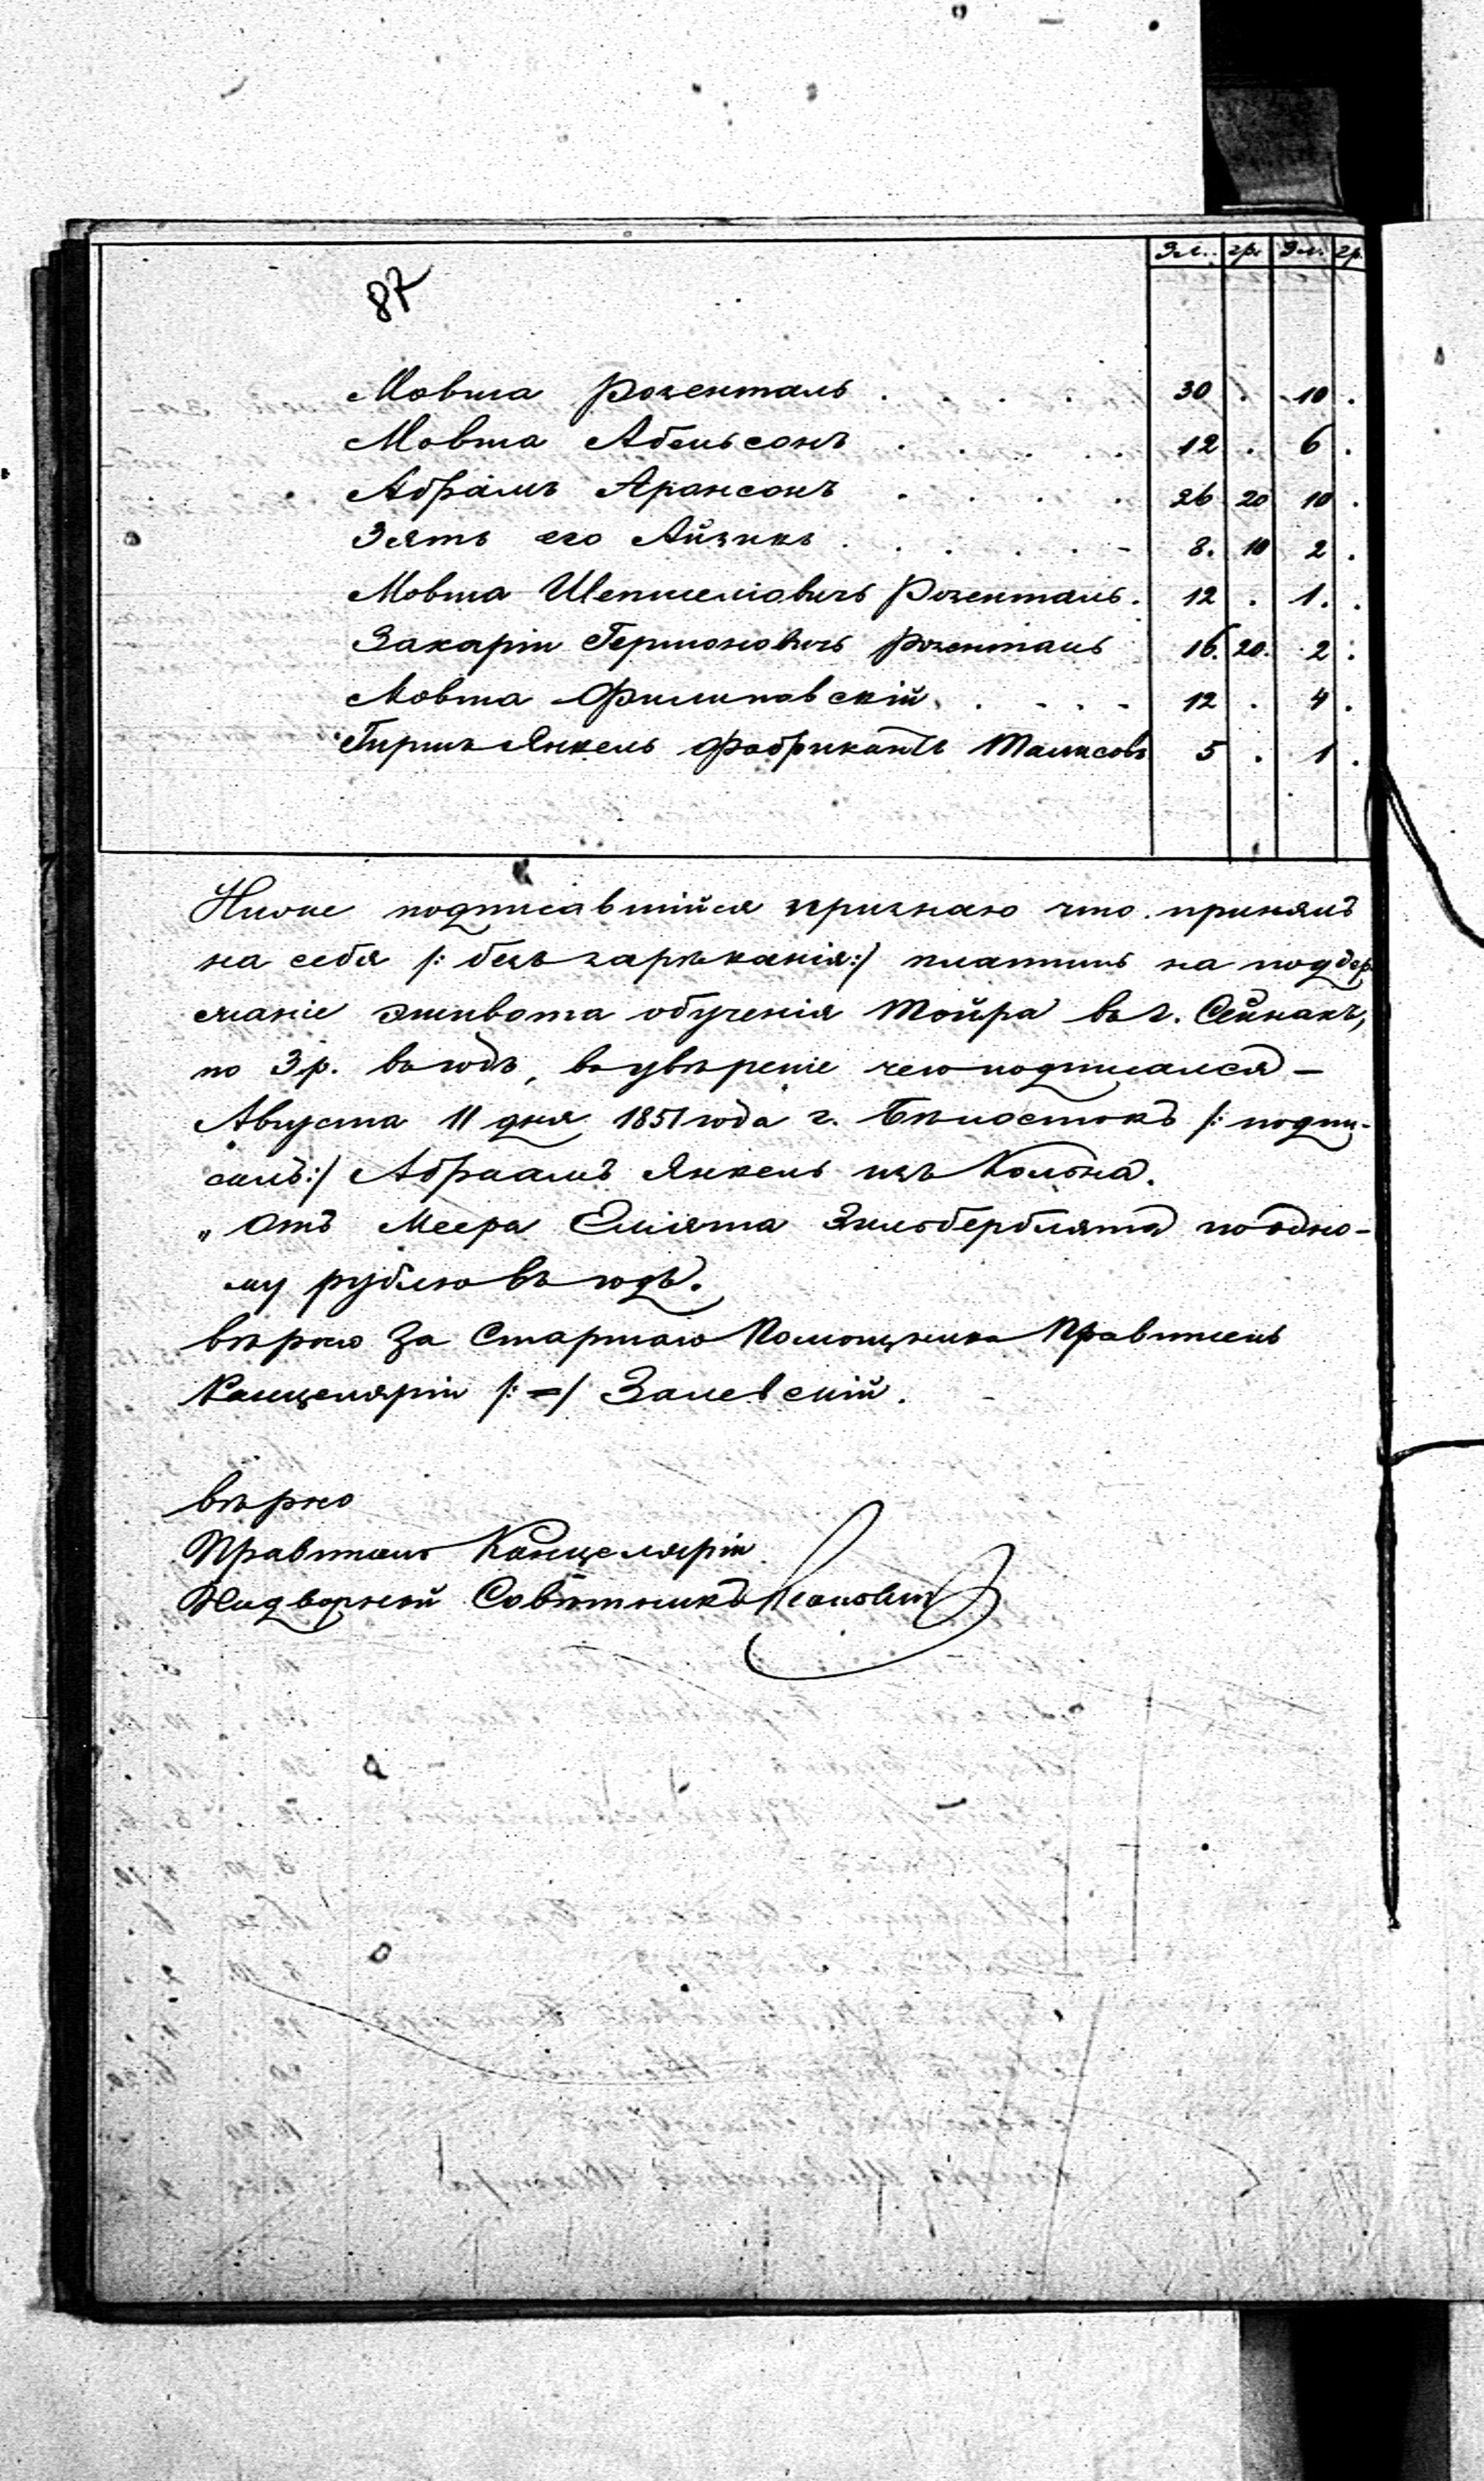 Зл. гр. Зл. гр.
87
Мовша Розенталь . . . . 30 . 10 .
Мовша Абельсонъ . . . . . 12 . 6 .
Абрамъ Арансонъ . . . . 26 20 10 .
Зять его Айзикъ . . . . . - 8. 10 2 .
Мовша Шепшелiовичъ Розенталь. 12 . 1. .
Захарiи Гермоновичъ Розенталь 16. 20. 2 .
Мовша Филиповскiй . . - . - 12 . 4 .
Гиршъ Янкель Фабрикантъ 5 . 1 .
Ниже подписавшiйся признаю что принялъ
на себя /: безъ зарѣканiя:/ платить на поддер
жанiе эшивота обученiя Тойра въ г.
по 3 р. въ годъ, въ увѣренiе чего подписался —
Августа 11 дня 1851 года г. Бѣлостокъ /: подпи-
салъ:/ Абраамъ Янкель изъ Кольна.
„ Отъ Меера Зильберблята по одно-
му рублю въ годъ.
Вѣрно За Старшаго Помощника Правитель
Канцелярiи /: = / Залевскiй.
Вѣрно
Правитель Канцелярiи
Надворный Совѣтникъ